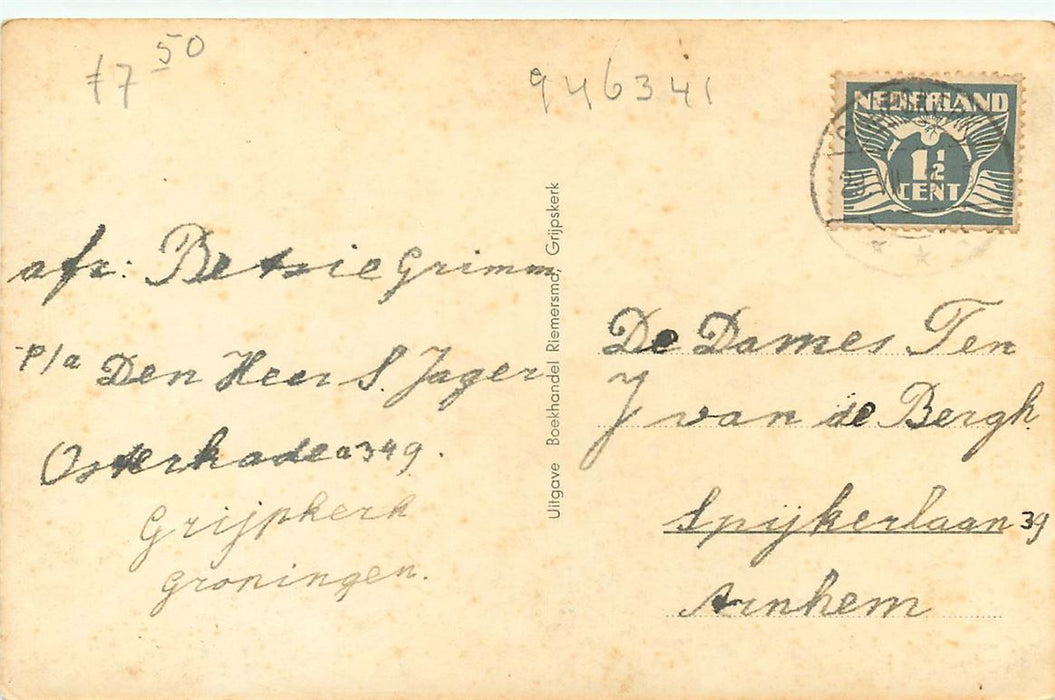 f7 50
946341
NEDERLAND
1½
CENT
afz: Betsie Grimm
p/a Den Heer S. Jager
Osterkade a349.
Grijpkerk
Groningen.
Uitgave Boekhandel Riemersma, Grijpskerk
De Dames Ten
J van de Bergh
Spijkerlaan 39
Arnhem